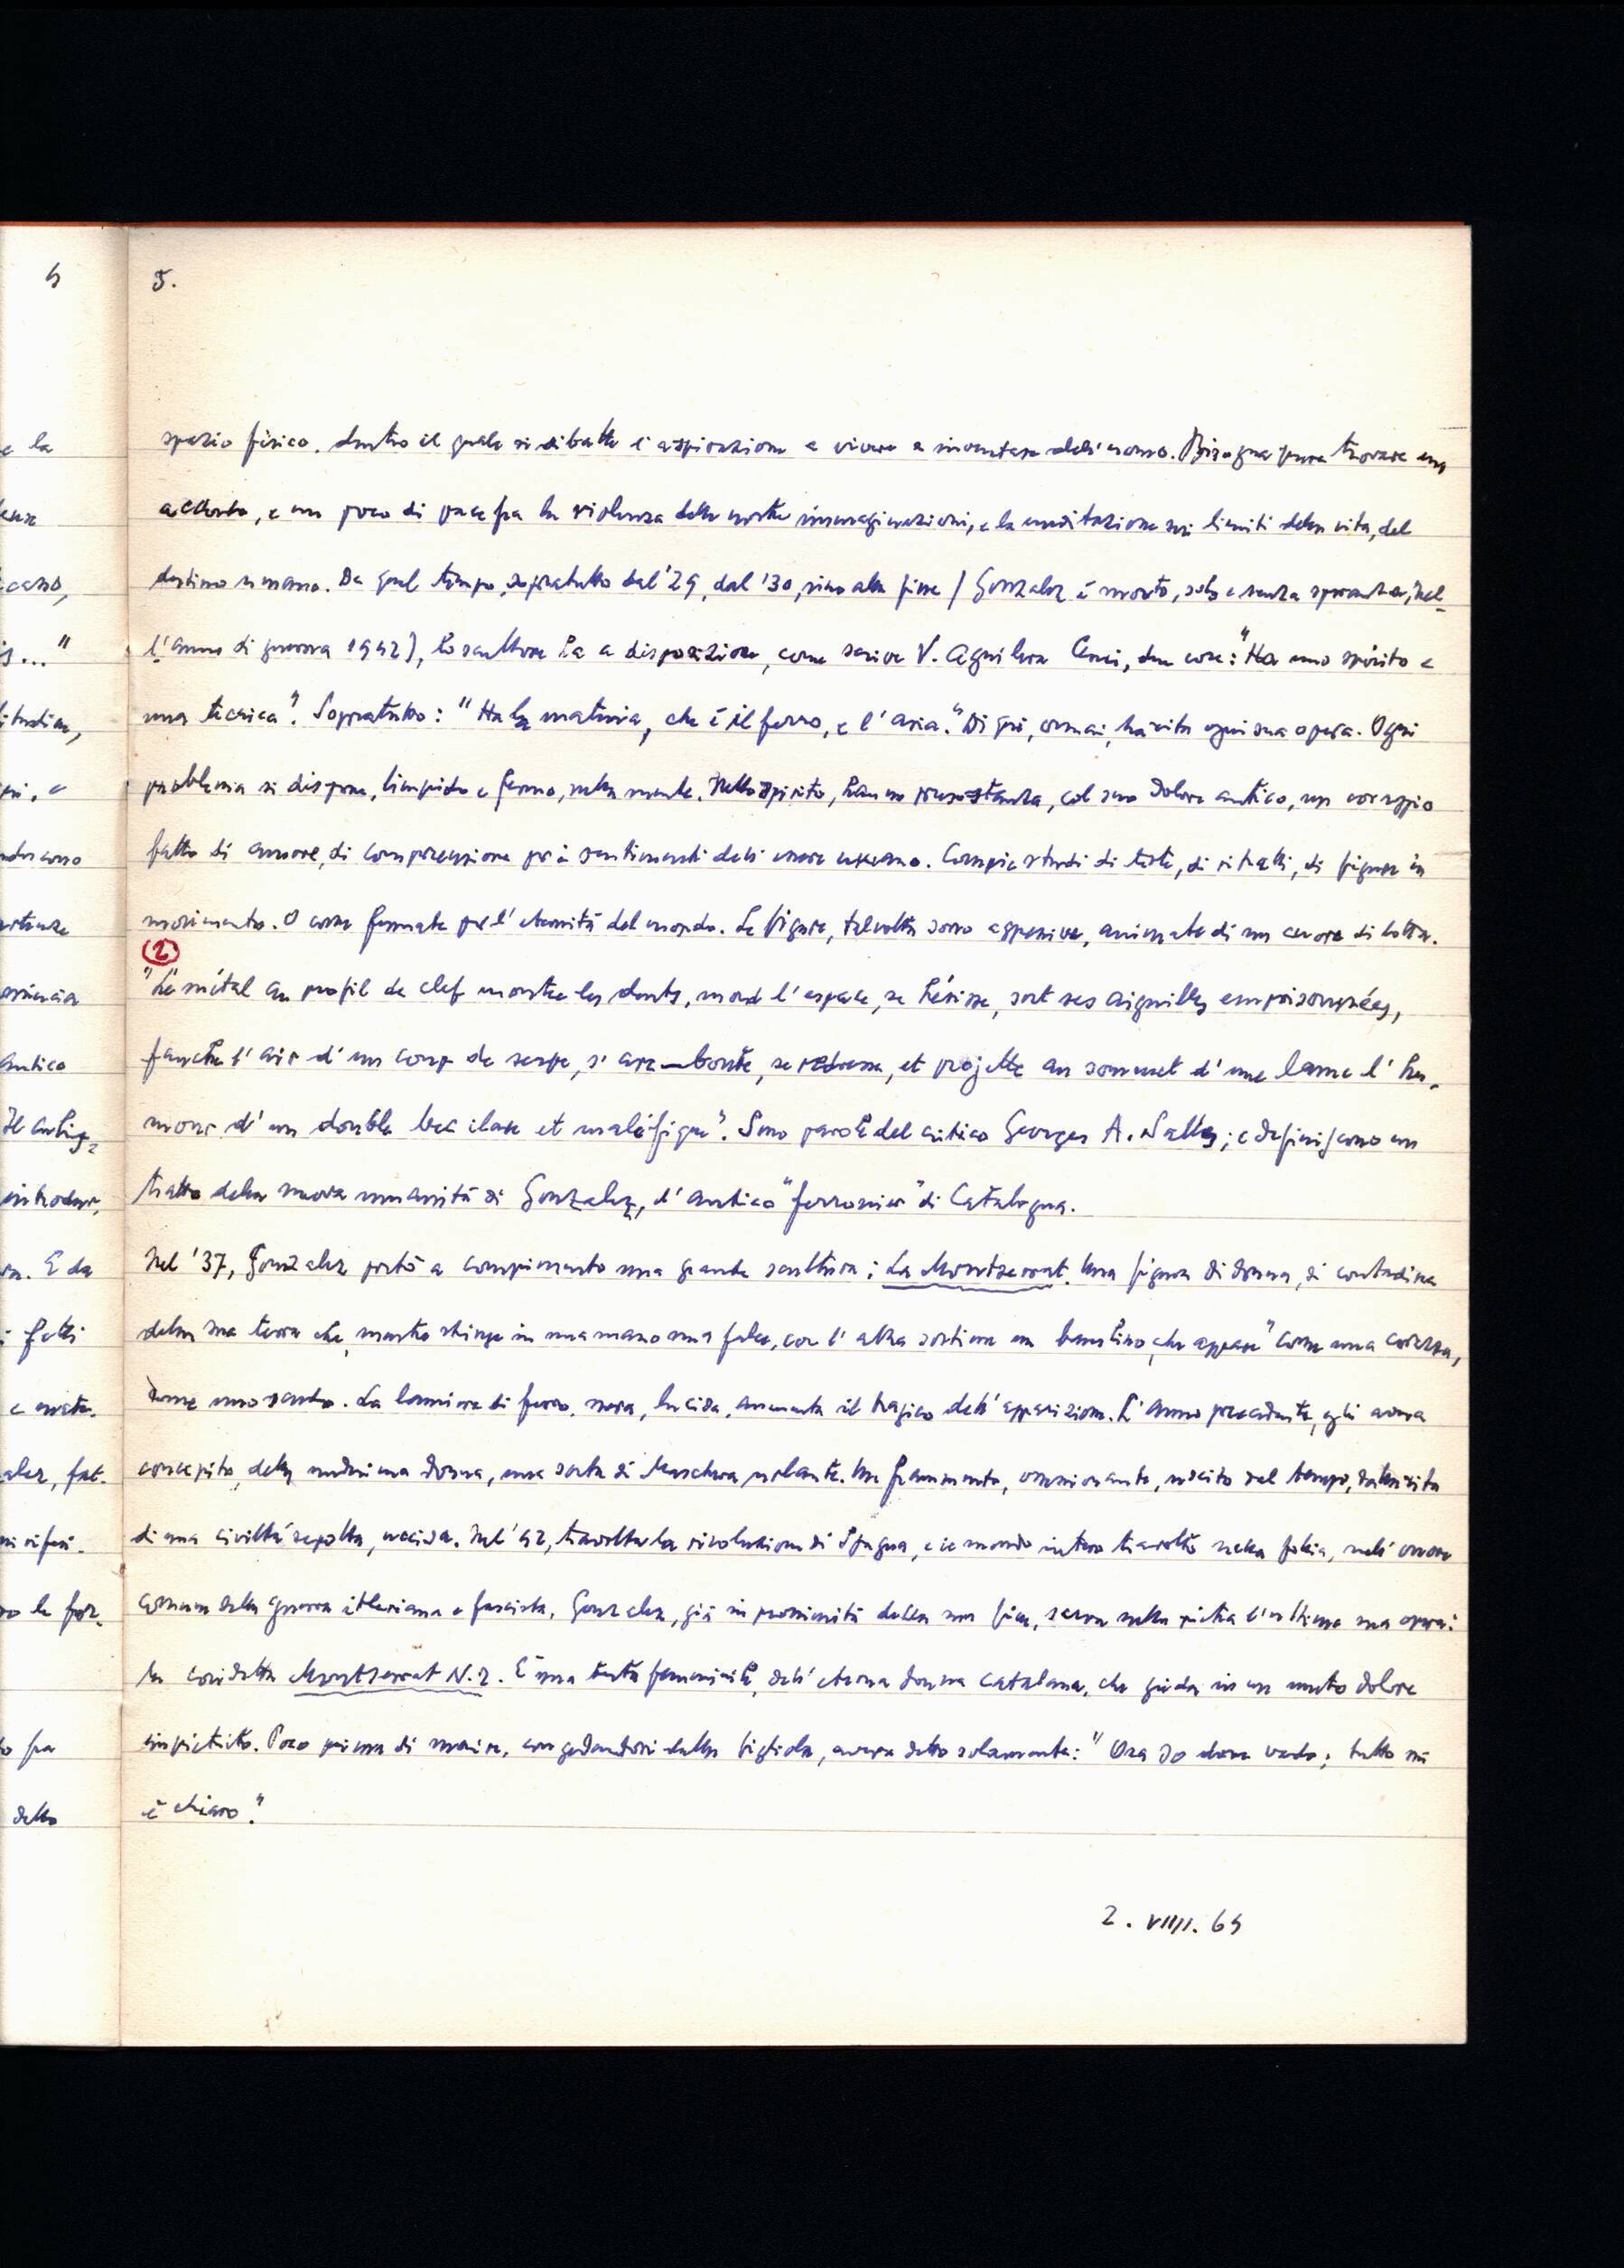 4
e la
casso,
is..."
e
antico
introdurr,
E da
fatti
alez, fat-
to fra
dello
5.
spazio fisico, dentro il quale si dibatte l'aspirazione a vivere a inventare dell'uomo. Bisogna pure trovare un
accordo, e un poco di pace fra la violenza delle nostre immaginazioni, e la meditazione sui limiti della vita, del
destino umano. Da quel tempo, sopratutto dal '29, dal '30, sino alla fine (Gonzalez è morto, solo e senza speranza, nel-
l'anno di guerra 1942), lo scultore ha a disposizione, come scrive V. Aguilera Cerni, due cose: "Ha uno spirito e
una tecnica". Sopratutto: "Ha la materia, che è il ferro, e l'aria." Di qui, ormai, ha vita ogni sua opera. Ogni
problema si dispone, limpido e fermo, nella mente. Nello spirito, hanno preso stanza, col suo dolore antico, un coraggio
fatto di amore, di comprensione per i sentimenti dell'essere umano. Compie studi di teste, di ritratti, di figure in
movimento. O come fermate per l'eternità del mondo. Le figure, talvolta sono aggressive, animate di un cuore di lotta.
(2)
"Le métal au profil de clef montre les dents, mord l'espace, se hérisse, sort ses aiguilles empoisonnées,
fauche l'air d'un coup de serpe, s'arc-boute, se redresse, et projette au sommet d'une lame l'hu-
mour d'un double bec ilare et maléfique". Sono parole del critico Georges A. Salles; e definiscono un
tratto della nuova umanità di Gonzalez, l'antico "ferronier" di Catalogna.
Nel '37, Gonzalez portò a compimento una grande scultura: La Montserrat. Una figura di donna, di contadina
della sua terra che, mentre stringe in una mano una falce, con l'altra sostiene un bambino, che appare "come una corazza,
come uno scudo. La lamiera di ferro, nera, lucida, aumenta il tragico dell'apparizione. L'anno precedente, egli aveva
concepito, della medesima donna, una sorta di Maschera urlante. Un frammento, emozionante, uscito dal tempo, dalla vita
di una civiltà sepolta, uccisa. Nel '42, travolta la rivoluzione di Spagna, e il mondo intero travolto nella follia, nell'orrore
comune della guerra itleriana e fascista, Gonzalez, già in prossimità della sua fine, scava nella pietra l'ultima sua opera:
la cosidetta Montserrat N. 2. È una testa femminile, dell'eterna donna catalana, che grida in un muto dolore
impietrito. Poco prima di morire, congedandosi dalla figliola, aveva detto solamente: "Ora so dove vado; tutto mi
è chiaro."
2. VIIII. 64